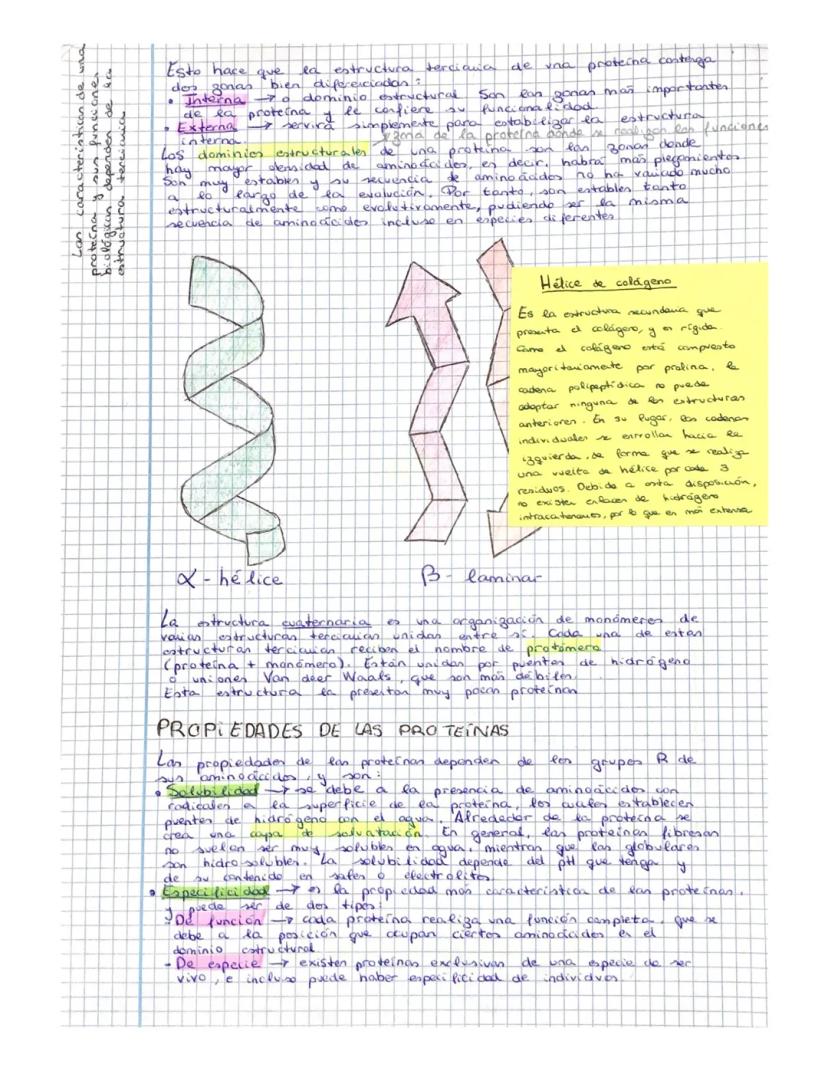 Las características de una
proteína y sus funciones
biológicas dependen de la
estructura terciaria
Esto hace que la estructura terciaria de una proteína contenga
dos zonas bien diferenciadas:
• Interna → o dominio estructural. Son las zonas más importantes
de la proteína y le confiere su funcionalidad
• Externa → servirá simplemente para estabilizar la estructura
interna.
zona de la proteína donde se realizan las funciones
Los dominios estructurales de una protina son las zonas donde
hay mayor densidad de aminoácidos, es decir, habrá más plegamientos.
Son muy estables y su secuencia de aminoácidos no ha variado mucho
a lo largo de la evolución. Por tanto, son estables tanto
estructuralmente como evolutivamente, pudiendo ser la misma
secuencia de aminoácidos incluso en especies diferentes
Hélice de colágeno
Es la estructura secundaria que
presenta el colágeno, y es rígida.
Como el colágeno está compuesto
mayoritariamente por prolina, la
cadena polipeptídica no puede
adoptar ninguna de las estructuras
anteriores. En su lugar, las cadenas
individuales se enrollan hacia la
izquierda, de forma que se realiza
una vuelta de hélice por cada 3
residuos. Debido a esta disposición,
no existen enlaces de hidrógeno
intracatenares, por lo que es más extensa
α - hélice
β - laminar
La estructura cuaternaria es una organización de monómeros de
varias estructuras terciarias unidas entre sí. Cada una de estas
estructuras terciarias reciben el nombre de protómero
(proteína + monómero). Están unidas por puentes de hidrógeno
o uniones Van deer Waals, que son más débiles.
Esta estructura la presentan muy pocas proteínas
PROPIEDADES DE LAS PROTEÍNAS
Las propiedades de las proteínas dependen de los grupos R de
sus aminoácidos, y son:
• Solubilidad → se debe a la presencia de aminoácidos con
radicales a la superficie de la proteína, los cuales establecen
puentes de hidrógeno con el agua. Alrededor de la proteína se
crea una capa de solvatación. En general, las proteínas fibrosas
no suelen ser muy solubles en agua, mientras que las globulares
son hidrosolubles. La solubilidad depende del pH que tenga y
de su contenido en sales o electrolitos.
• Especificidad → es la propiedad más característica de las proteínas,
y puede ser de dos tipos:
- De función → cada proteína realiza una función completa, que se
debe a la posición que ocupan ciertos aminoácidos en el
dominio estructural.
- De especie → existen proteínas exclusivas de una especie de ser
vivo, e incluso puede haber especificidad de individuos